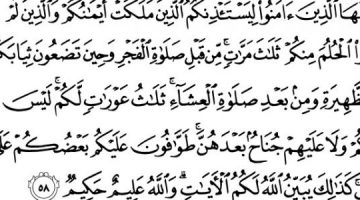 هَا ٱلَّذِينَ ءَامَنُوا۟ لِيَسْتَـْٔذِنكُمُ ٱلَّذِينَ مَلَكَتْ أَيْمَـٰنُكُمْ وَٱلَّذِينَ لَمْ
وا۟ ٱلْحُلُمَ مِنكُمْ ثَلَـٰثَ مَرَّٰتٍ ۚ مِّن قَبْلِ صَلَوٰةِ ٱلْفَجْرِ وَحِينَ تَضَعُونَ ثِيَابَكُ
لظَّهِيرَةِ وَمِنۢ بَعْدِ صَلَوٰةِ ٱلْعِشَآءِ ۚ ثَلَـٰثُ عَوْرَٰتٍ لَّكُمْ ۚ لَيْسَ
مْ وَلَا عَلَيْهِمْ جُنَاحٌۢ بَعْدَهُنَّ ۚ طَوَّٰفُونَ عَلَيْكُم بَعْضُكُمْ عَلَىٰ
ۚ كَذَٰلِكَ يُبَيِّنُ ٱللَّهُ لَكُمُ ٱلْـَٔايَـٰتِ ۗ وَٱللَّهُ عَلِيمٌ حَكِيمٌ ٥٨